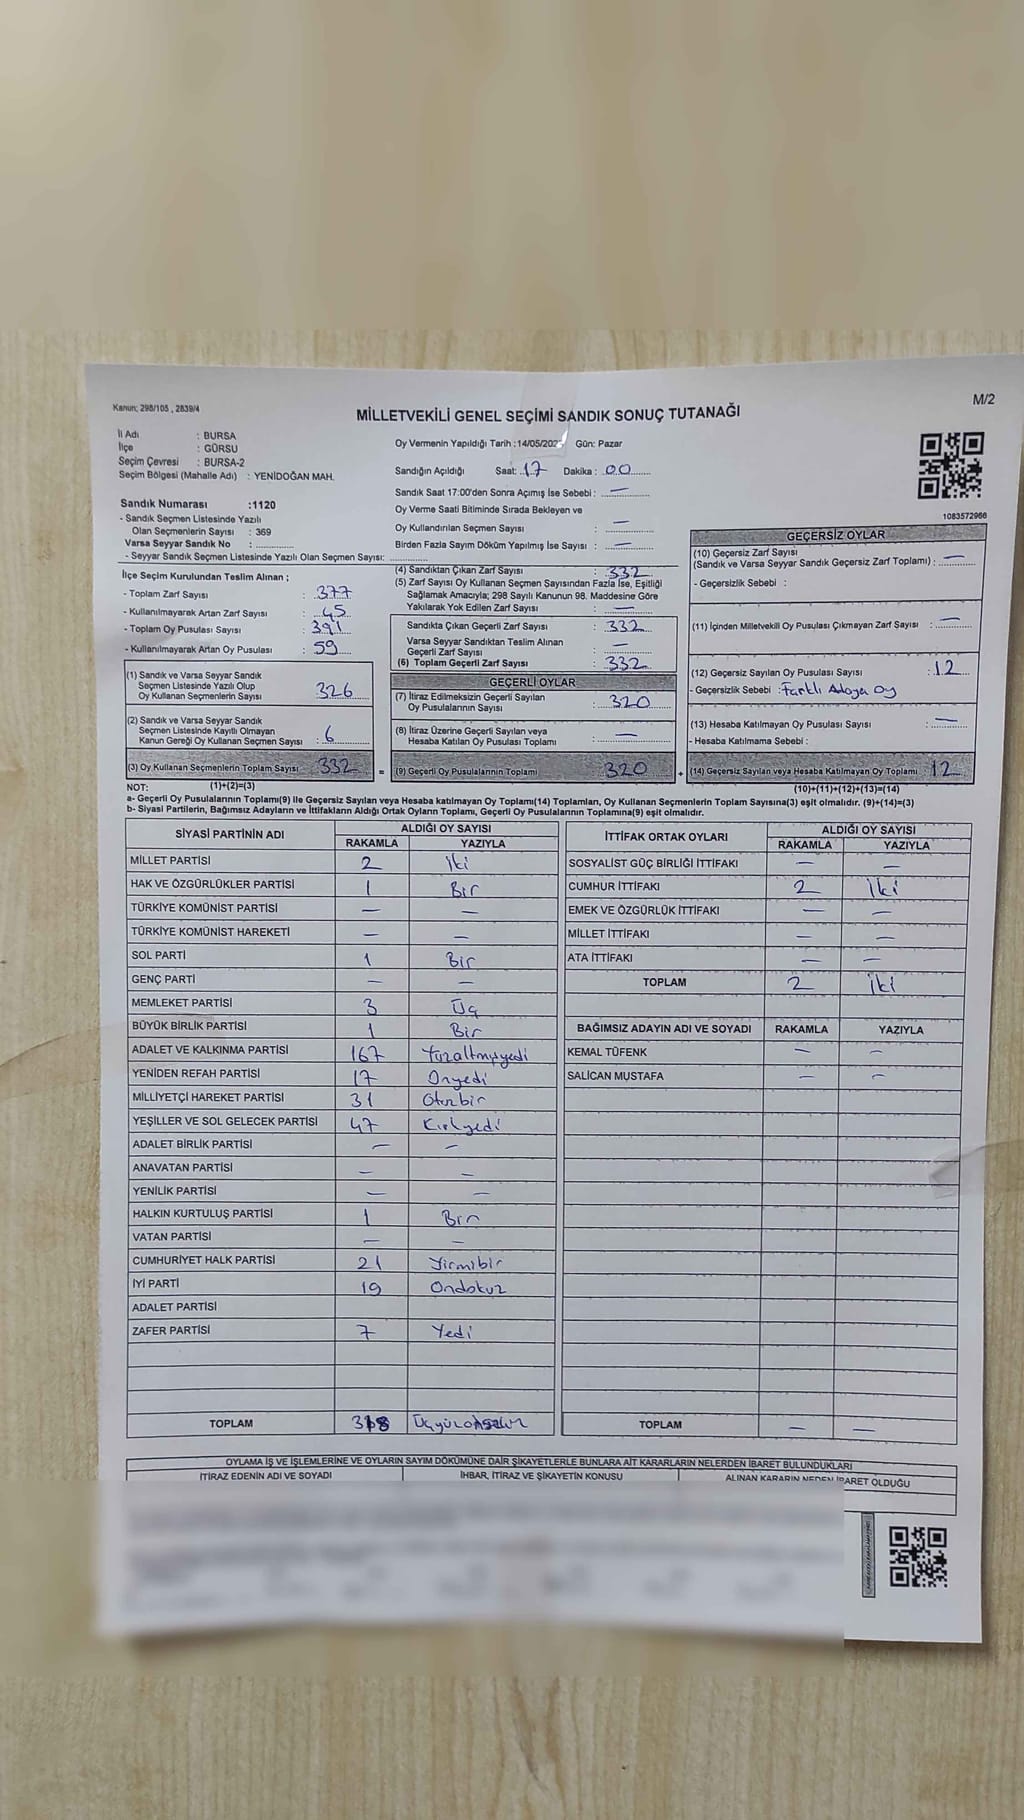 Kanun; 298/105 , 2839/4
M/2
MİLLETVEKİLİ GENEL SEÇİMİ SANDIK SONUÇ TUTANAĞI
İl Adı : BURSA
İlçe : GÜRSU
Seçim Çevresi : BURSA-2
Seçim Bölgesi (Mahalle Adı) : YENİDOĞAN MAH.
Sandık Numarası :1120
- Sandık Seçmen Listesinde Yazılı
Olan Seçmenlerin Sayısı : 369
Varsa Seyyar Sandık No :
- Seyyar Sandık Seçmen Listesinde Yazılı Olan Seçmen Sayısı:
Oy Vermenin Yapıldığı Tarih :14/05/202 Gün: Pazar
Sandığın Açıldığı Saat: 17 Dakika : 00
Sandık Saat 17:00'den Sonra Açımış İse Sebebi : —
Oy Verme Saati Bitiminde Sırada Bekleyen ve
Oy Kullandırılan Seçmen Sayısı : —
Birden Fazla Sayım Döküm Yapılmış İse Sayısı : —
1083572966
İlçe Seçim Kurulundan Teslim Alınan ;
- Toplam Zarf Sayısı : 377
- Kullanılmayarak Artan Zarf Sayısı : 45
- Toplam Oy Pusulası Sayısı : 391
- Kullanılmayarak Artan Oy Pusulası : 59
(1) Sandık ve Varsa Seyyar Sandık
Seçmen Listesinde Yazılı Olup
Oy Kullanan Seçmenlerin Sayısı : 326
(2) Sandık ve Varsa Seyyar Sandık
Seçmen Listesinde Kayıtlı Olmayan
Kanun Gereği Oy Kullanan Seçmen Sayısı : 6
(3) Oy Kullanan Seçmenlerin Toplam Sayısı : 332
(4) Sandıktan Çıkan Zarf Sayısı : 332
(5) Zarf Sayısı Oy Kullanan Seçmen Sayısından Fazla İse, Eşitliği
Sağlamak Amacıyla; 298 Sayılı Kanunun 98. Maddesine Göre
Yakılarak Yok Edilen Zarf Sayısı : —
Sandıkta Çıkan Geçerli Zarf Sayısı : 332
Varsa Seyyar Sandıktan Teslim Alınan
Geçerli Zarf Sayısı : —
(6) Toplam Geçerli Zarf Sayısı : 332
GEÇERLİ OYLAR
(7) İtiraz Edilmeksizin Geçerli Sayılan
Oy Pusulalarının Sayısı : 320
(8) İtiraz Üzerine Geçerli Sayılan veya
Hesaba Katılan Oy Pusulası Toplamı : —
= (9) Geçerli Oy Pusulalarının Toplamı 320
GEÇERSİZ OYLAR
(10) Geçersiz Zarf Sayısı
(Sandık ve Varsa Seyyar Sandık Geçersiz Zarf Toplamı) : —
- Geçersizlik Sebebi :
(11) İçinden Milletvekili Oy Pusulası Çıkmayan Zarf Sayısı : —
(12) Geçersiz Sayılan Oy Pusulası Sayısı : 12
- Geçersizlik Sebebi : Farklı Adaya oy
(13) Hesaba Katılmayan Oy Pusulası Sayısı : —
- Hesaba Katılmama Sebebi :
+ (14) Geçersiz Sayılan veya Hesaba Katılmayan Oy Toplamı 12
NOT: (1)+(2)=(3) (10)+(11)+(12)+(13)=(14)
a- Geçerli Oy Pusulalarının Toplamı(9) ile Geçersiz Sayılan veya Hesaba katılmayan Oy Toplamı(14) Toplamları, Oy Kullanan Seçmenlerin Toplam Sayısına(3) eşit olmalıdır. (9)+(14)=(3)
b- Siyasi Partilerin, Bağımsız Adayların ve İttifakların Aldığı Ortak Oyların Toplamı, Geçerli Oy Pusulalarının Toplamına(9) eşit olmalıdır.
SİYASİ PARTİNİN ADI ALDIĞI OY SAYISI
RAKAMLA YAZIYLA
MİLLET PARTİSİ 2 iki
HAK VE ÖZGÜRLÜKLER PARTİSİ 1 Bir
TÜRKİYE KOMÜNİST PARTİSİ — —
TÜRKİYE KOMÜNİST HAREKETİ — —
SOL PARTİ 1 Bir
GENÇ PARTİ — —
MEMLEKET PARTİSİ 3 Üç
BÜYÜK BİRLİK PARTİSİ 1 Bir
ADALET VE KALKINMA PARTİSİ 167 Yüzaltmışyedi
YENİDEN REFAH PARTİSİ 17 Onyedi
MİLLİYETÇİ HAREKET PARTİSİ 31 Otuzbir
YEŞİLLER VE SOL GELECEK PARTİSİ 47 Kırkyedi
ADALET BİRLİK PARTİSİ — —
ANAVATAN PARTİSİ — —
YENİLİK PARTİSİ — —
HALKIN KURTULUŞ PARTİSİ 1 Bir
VATAN PARTİSİ — —
CUMHURİYET HALK PARTİSİ 21 Yirmibir
İYİ PARTİ 19 Ondokuz
ADALET PARTİSİ
ZAFER PARTİSİ 7 Yedi
TOPLAM 318
İTTİFAK ORTAK OYLARI ALDIĞI OY SAYISI
RAKAMLA YAZIYLA
SOSYALİST GÜÇ BİRLİĞİ İTTİFAKI — —
CUMHUR İTTİFAKI 2 İki
EMEK VE ÖZGÜRLÜK İTTİFAKI — —
MİLLET İTTİFAKI — —
ATA İTTİFAKI — —
TOPLAM 2 İki
BAĞIMSIZ ADAYIN ADI VE SOYADI RAKAMLA YAZIYLA
KEMAL TÜFENK — —
SALİCAN MUSTAFA — —
TOPLAM — —
OYLAMA İŞ VE İŞLEMLERİNE VE OYLARIN SAYIM DÖKÜMÜNE DAİR ŞİKAYETLERLE BUNLARA AİT KARARLARIN NELERDEN İBARET BULUNDUKLARI
İTİRAZ EDENİN ADI VE SOYADI İHBAR, İTİRAZ VE ŞİKAYETİN KONUSU ALINAN KARARIN NEDEN İBARET OLDUĞU